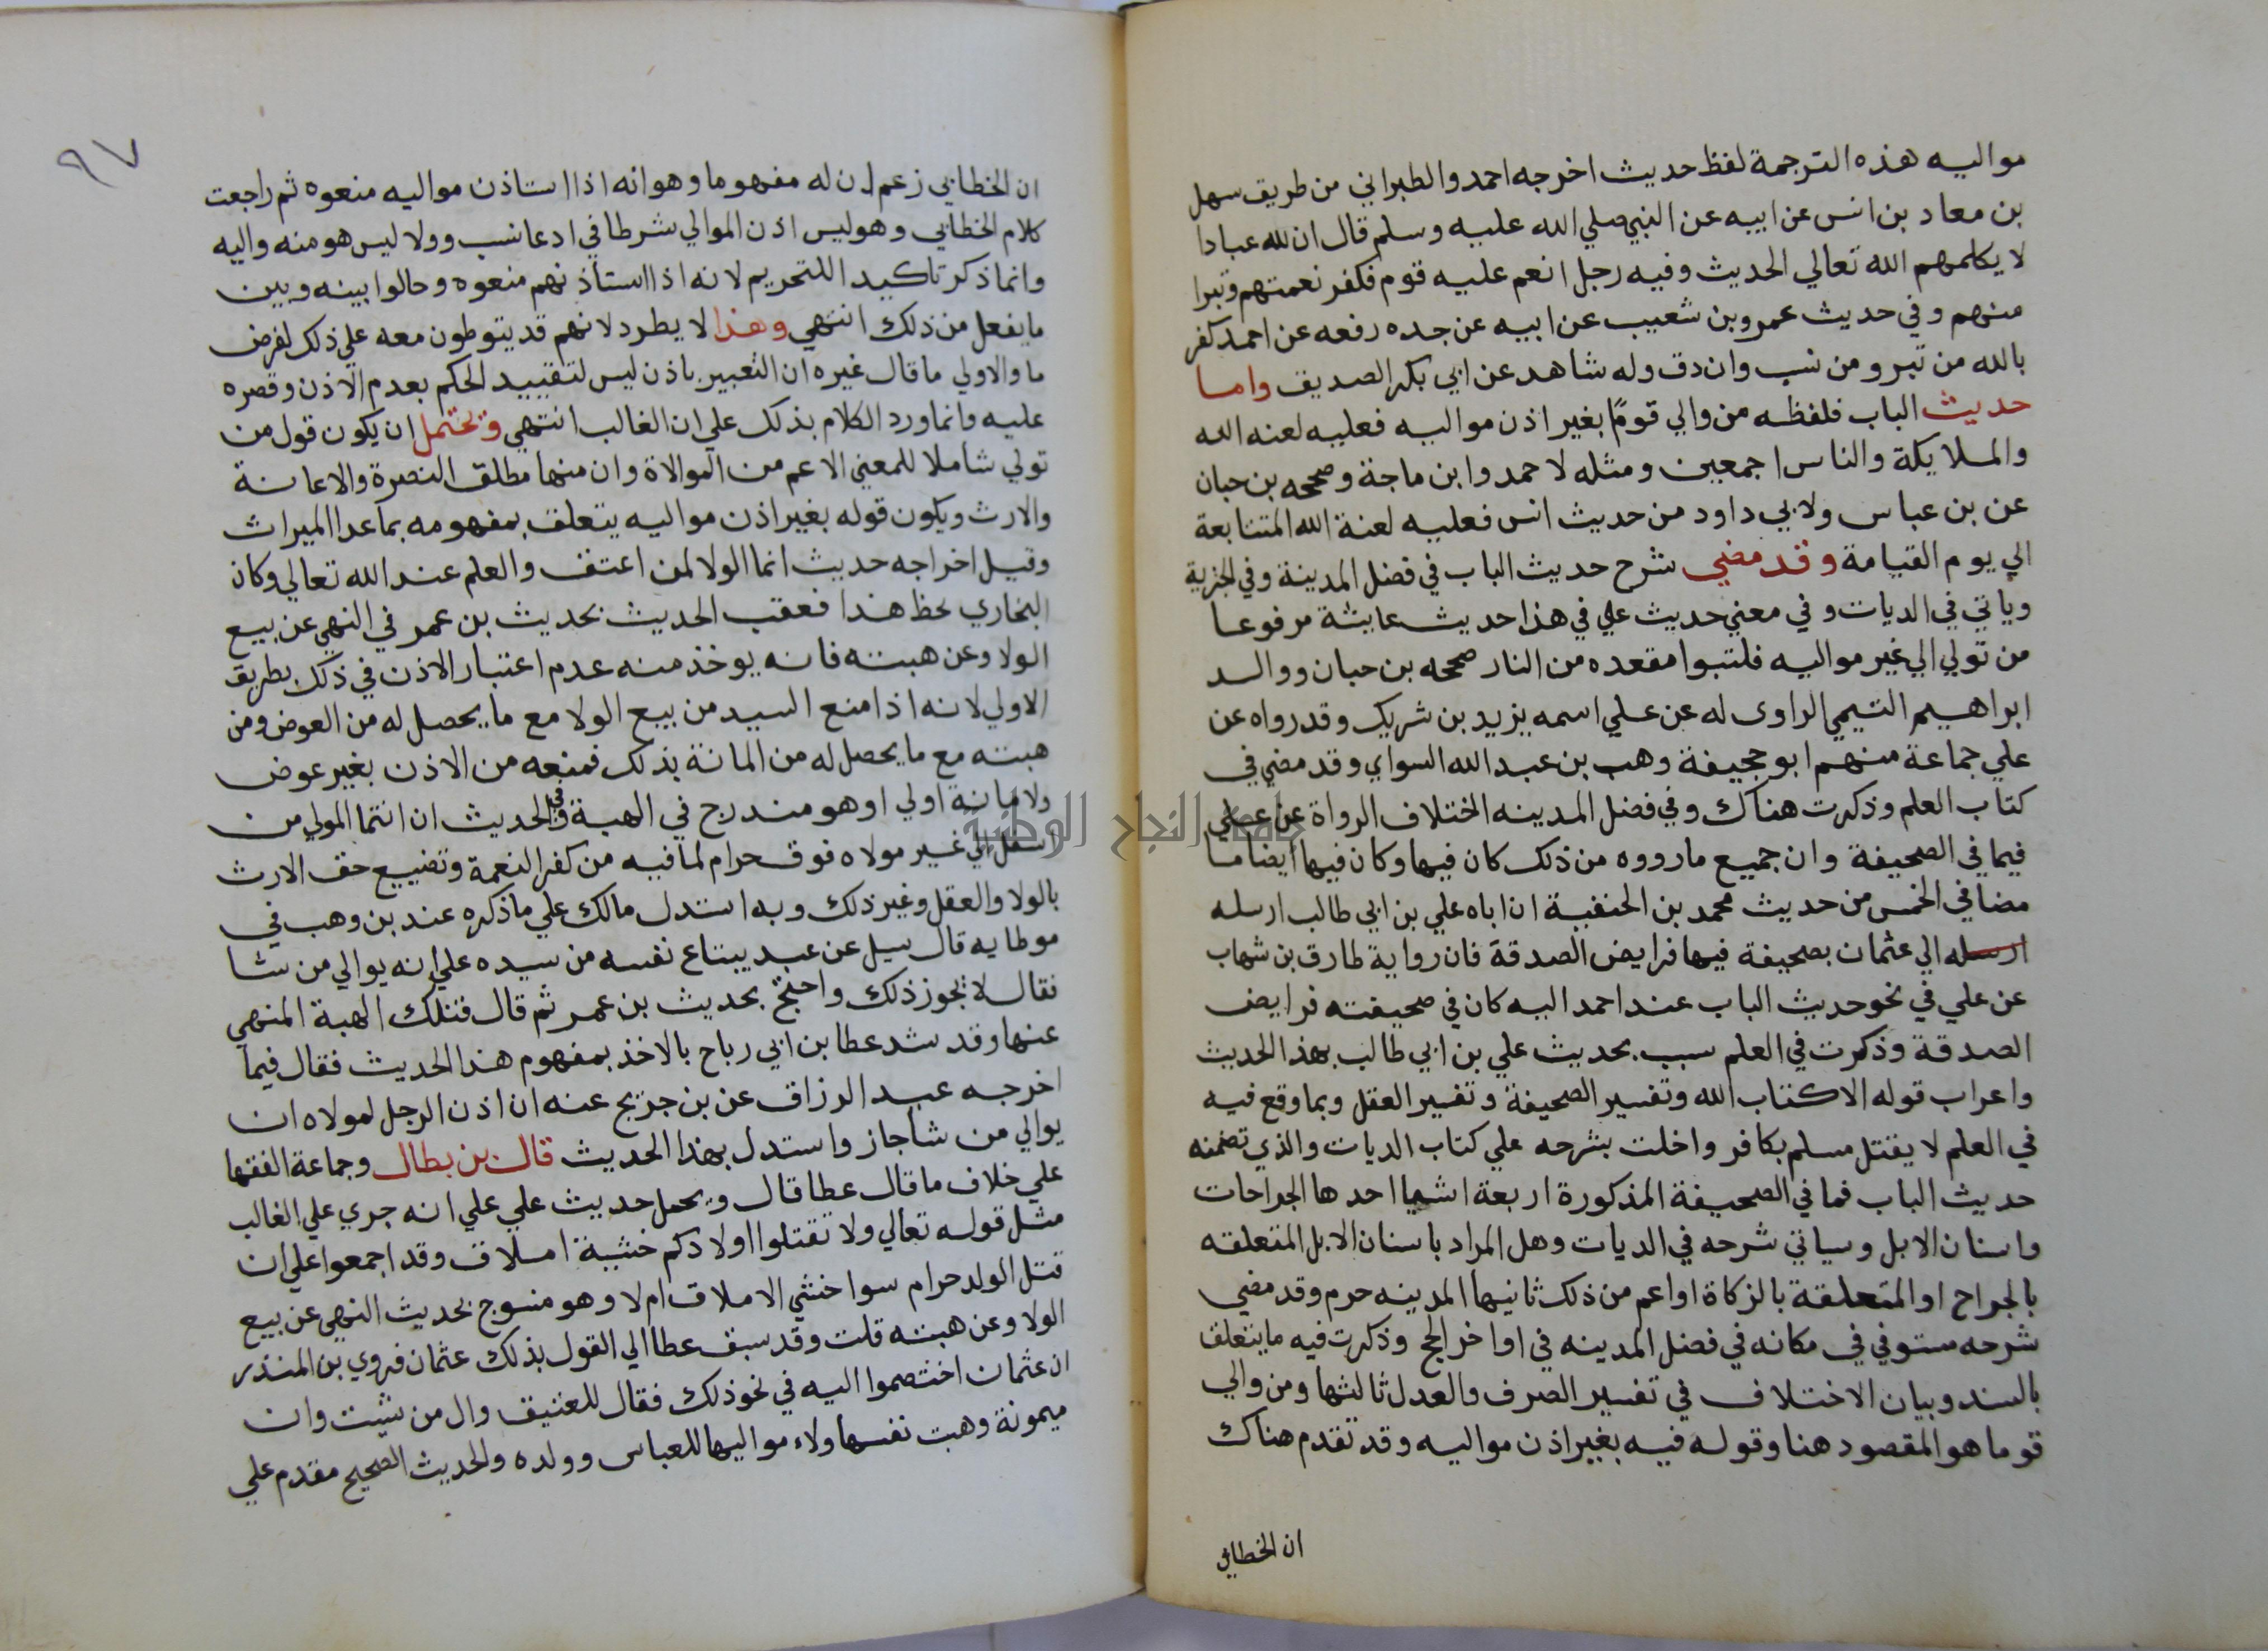 مواليه هذه الترجمة لفظ حديث اخرجه احمد والطبراني من طريق سهل
بن معاد بن انس عن ابيه عن النبي صلي الله عليه وسلم قال ان لله عبادا
لا يكلمهم الله تعالي الحديث وفيه رجل انعم عليه قوم فكفر نعمتهم وتبرا
منهم وفي حديث عمرو بن شعيب عن ابيه عن جده رفعه عن احمد كفر
بالله من تبرو من نسب وان دق وله شاهد عن ابي بكر الصديق واما
حديث الباب فلفظه من والي قومًا بغير اذن مواليه فعليه لعنه الله
والملايكة والناس اجمعين ومثله لاحمد وابن ماجة وصححه بن حبان
عن بن عباس ولابي داود من حديث انس فعليه لعنة الله المتتابعة
الي يوم القيامة وقد مضي شرح حديث الباب في فضل المدينة وفي الجزية
وياتي في الديات وفي معني حديث علي في هذا حديث عايشة مرفوعا
من تولي الي غير مواليه فلتبوا مقعده من النار صححه بن حبان ووالد
ابراهيم التيمي الراوى له عن علي اسمه يزيد بن شريك وقد رواه عن
علي جماعة منهم ابو جحيفة وهب بن عبد الله السواي وقد مضي في
كتاب العلم وذكرت هناك وفي فضل المدينه اختلاف الرواة عن علي
فيما في الصحيفة وان جميع ما رووه من ذلك كان فيها وكان فيها ايضا ما
مضا في الخمس من حديث محمد بن الحنفية ان اباه علي بن ابي طالب ارسله
ارسله الي عثمان بصحيفة فيها فرايض الصدقة فان رواية طارق بن شهاب
عن علي في نحو حديث الباب عند احمد اليه كان في صحيفته فرايض
الصدقة وذكرت في العلم سبب بحديث علي بن ابي طالب بهذا الحديث
واعراب قوله الا كتاب الله وتفسير الصحيفة وتفسير العقل وبما وقع فيه
في العلم لا يقتل مسلم بكافر واخلت بشرحه علي كتاب الديات والذي تضمنه
حديث الباب فما في الصحيفة المذكورة اربعة اشيا احدها الجراحات
واسنان الابل وسياتي شرحه في الديات وهل المراد باسنان الابل المتعلقه
بالجراح او المتعلقة بالزكاة او اعم من ذلك ثانيها المدينه حرم وقد مضي
شرحه مستوفي في مكانه في فضل المدينه في اواخر الحج وذكرت فيه ما يتعلق
بالسند وبيان الاختلاف في تفسير الصرف والعدل ثالثها ومن والي
قوما هو المقصود هنا وقوله فيه بغير اذن مواليه وقد تقدم هناك
ان الخطابي
٩٧
ان الخطابي زعم ان له مفهوما وهو انه اذا استاذن مواليه منعوه ثم راجعت
كلام الخطابي وهو ليس اذن الموالي شرطا في ادعا نسب وولا ليس هو منه واليه
وانما ذكر تاكيد اللتحريم لانه اذا استاذنهم منعوه وحالوا بينه وبين
ما يفعل من ذلك انتهي وهذا لا يطرد لانهم قد يتوطون معه علي ذلك لفرض
ما والاولي ما قال غيره ان التعبير باذن ليس لتقييد الحكم بعدم الاذن وقصره
عليه وانما ورد الكلام بذلك علي ان الغالب انتهي ويحتمل ان يكون قول من
تولي شاملا للمعني الاعم من الموالاة وان منها مطلق النصرة والاعانة
والارث ويكون قوله بغير اذن مواليه يتعلق بمفهومه بما عدا الميراث
وقيل اخراجه حديث انما الولا لمن اعتق والعلم عند الله تعالي وكان
البخاري لحظ هذا فعقب الحديث بحديث بن عمر في النهي عن بيع
الولا وعن هبته فانه يوخذ منه عدم اعتبار الاذن في ذلك بطريق
الاولي لانه اذا منع السيد من بيع الولا مع ما يحصل له من العوض ومن
هبته مع ما يحصل له من المانة بذلك فمنعه من الاذن بغير عوض
ولا مانة اولي او هو مندرج في الهبة وفي الحديث ان انتما المولي من
اسفل الي غير مولاه فوق حرام لما فيه من كفر النعمة وتضييع حق الارث
بالولا والعقل وغير ذلك وبه استدل مالك علي ما ذكره عند بن وهب في
موطايه قال سيل عن عبد يبتاع نفسه من سيده علي انه يوالي من شا
فقال لا يجوز ذلك واحتج بحديث بن عمر ثم قال فتلك الهبة المنهي
عنها وقد شد عطا بن ابي رباح بالاخذ بمفهوم هذا الحديث فقال فيما
اخرجه عبد الرزاق عن بن جريج عنه ان اذن الرجل لمولاه ان
يوالي من شا جاز واستدل بهذا الحديث قال بن بطال وجماعة الفقها
علي خلاف ما قال عطا قال ويحمل حديث علي علي انه جري علي الغالب
مثل قوله تعالي ولا تقتلوا اولادكم خشية املاق وقد اجمعوا علي ان
قتل الولد حرام سوا خشي الاملاق ام لا وهو منسوج بحديث النهي عن بيع
الولا وعن هبته قلت وقد سبق عطا الي القول بذلك عثمان فروي بن المنذر
ان عثمان اختصموا اليه في نحو ذلك فقال للعتيق وال من شيت وان
ميمونة وهبت نفسها ولاء مواليها للعباس وولده والحديث الصحيح مقدم علي
جامعة النجاح الوطنية